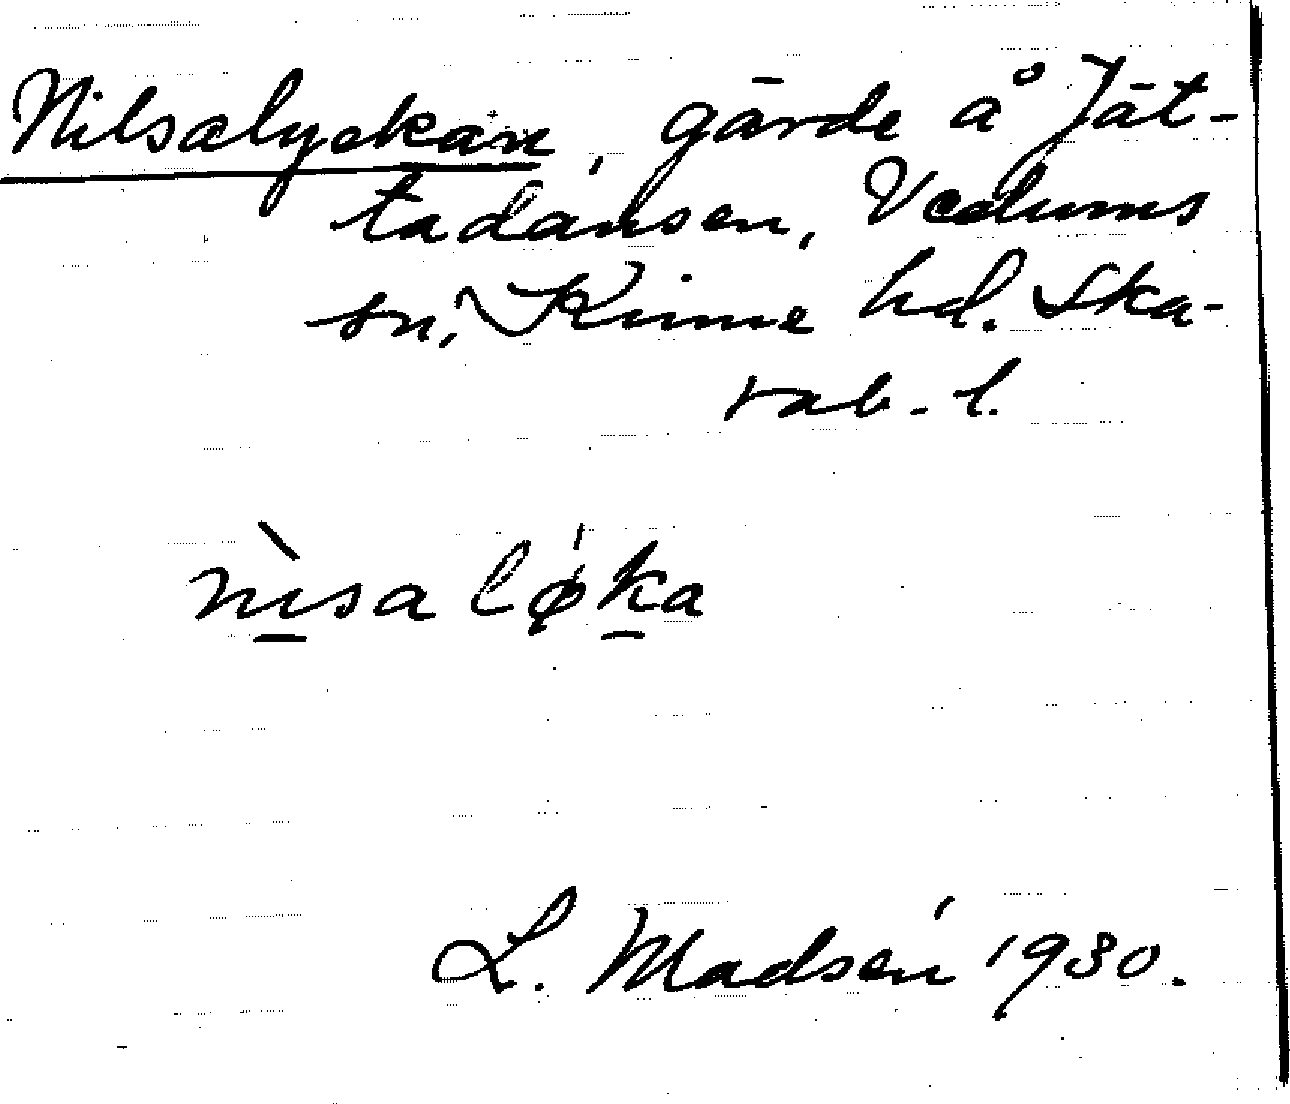 Nilsalyckan, gärde å Jät-
tadansen, Vedums
sn, Kinne hd. Ska-
rab. l.
nìsa løka
L. Madsén 1930.